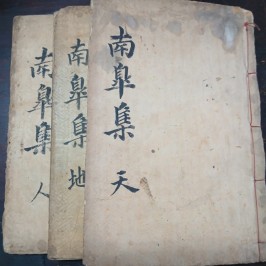 南皐集 天
南皐集 地
南皐集 人